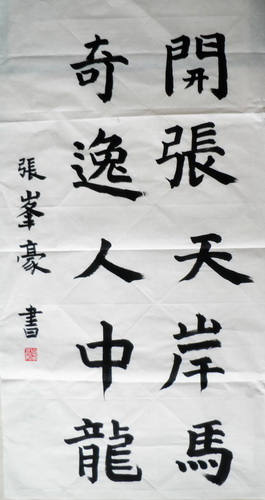 開張天岸馬
奇逸人中龍
張峯豪 書